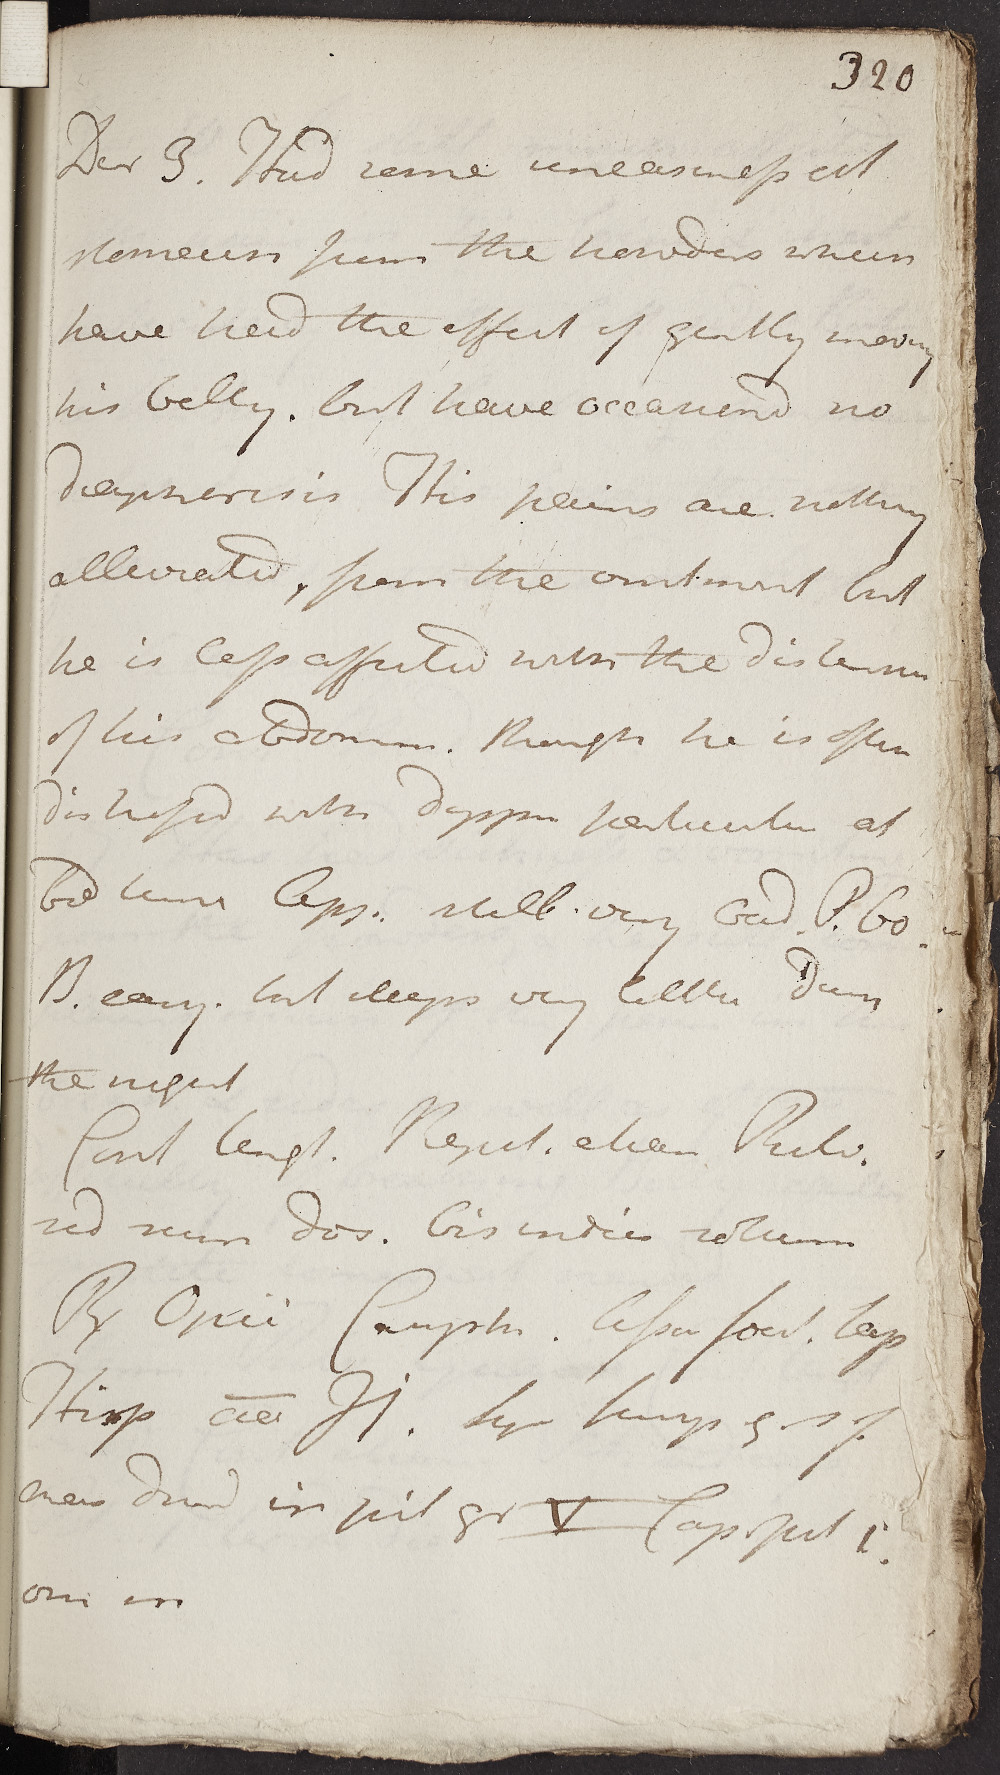 320
Der 3. Had some uneasiness at
stomach from the powders which
have had the effect of gently moving
his belly. but have occasiond no
diaphoresis His pains are nothing
alleviated, from the ointment but
he is less affected with the distension
of his abdomen. though he is often
distressed with dyspn particular at
bed time Appt. still very bad. P. 60.
B. easy. but sleeps very little During
the night
Cont Ungt. Repet. etiam Pulv.
sed num dos. bis indies
Rx Opii Camph. Assa foet. Sap
Hisp aa ʒj. Syr q. s. f.
mass divid in pil gr V Cap pil i.
om n